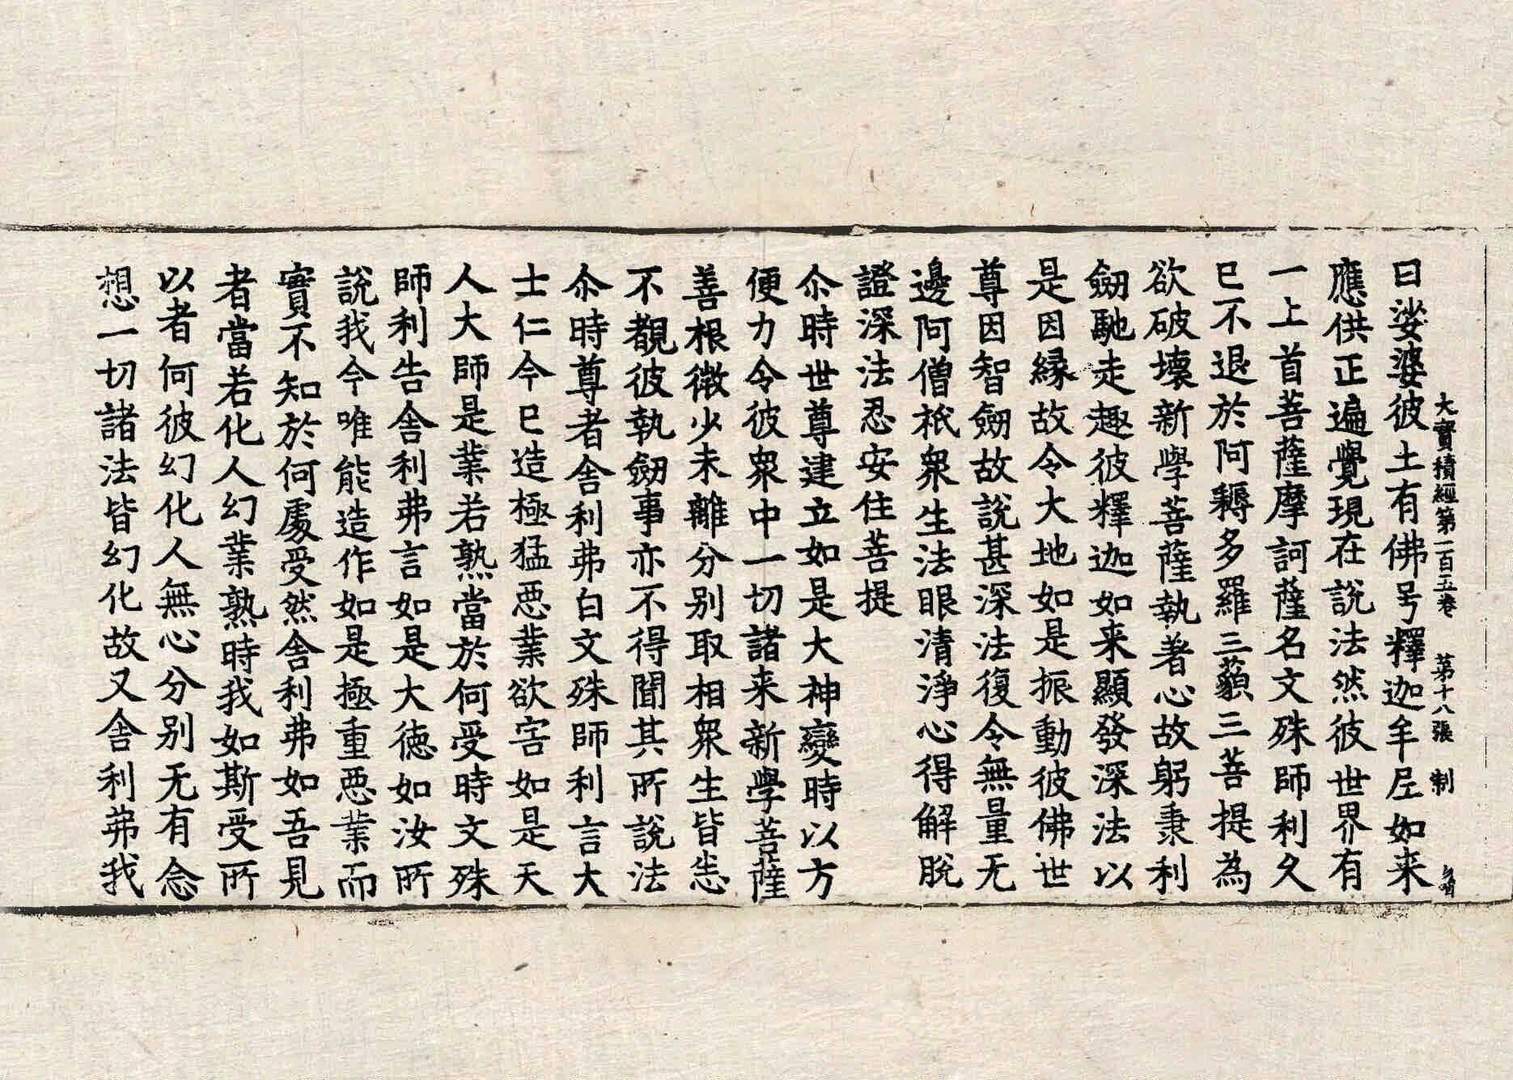 大寶積經第一百五卷 第十八張 制
曰娑婆彼土有佛号釋迦牟尼如来
應供正遍覺現在說法然彼世界有
一上首菩薩摩訶薩名文殊師利久
已不退於阿耨多羅三藐三菩提為
欲破壞新學菩薩執著心故躬秉利
劒馳走趣彼釋迦如来顯發深法以
是因緣故令大地如是振動彼佛世
尊因智劒故說甚深法復令無量无
邊阿僧祇衆生法眼清淨心得解脫
證深法忍安住菩提
尒時世尊建立如是大神變時以方
便力令彼衆中一切諸来新學菩薩
善根微少未離分别取相衆生皆悉
不覩彼執劒事亦不得聞其所說法
尒時尊者舍利弗白文殊師利言大
士仁今已造極猛惡業欲害如是天
人大師是業若熟當於何受時文殊
師利告舍利弗言如是大德如汝所
說我今唯能造作如是極重惡業而
實不知於何處受然舍利弗如吾見
者當若化人幻業熟時我如斯受所
以者何彼幻化人無心分别无有念
想一切諸法皆幻化故又舍利弗我